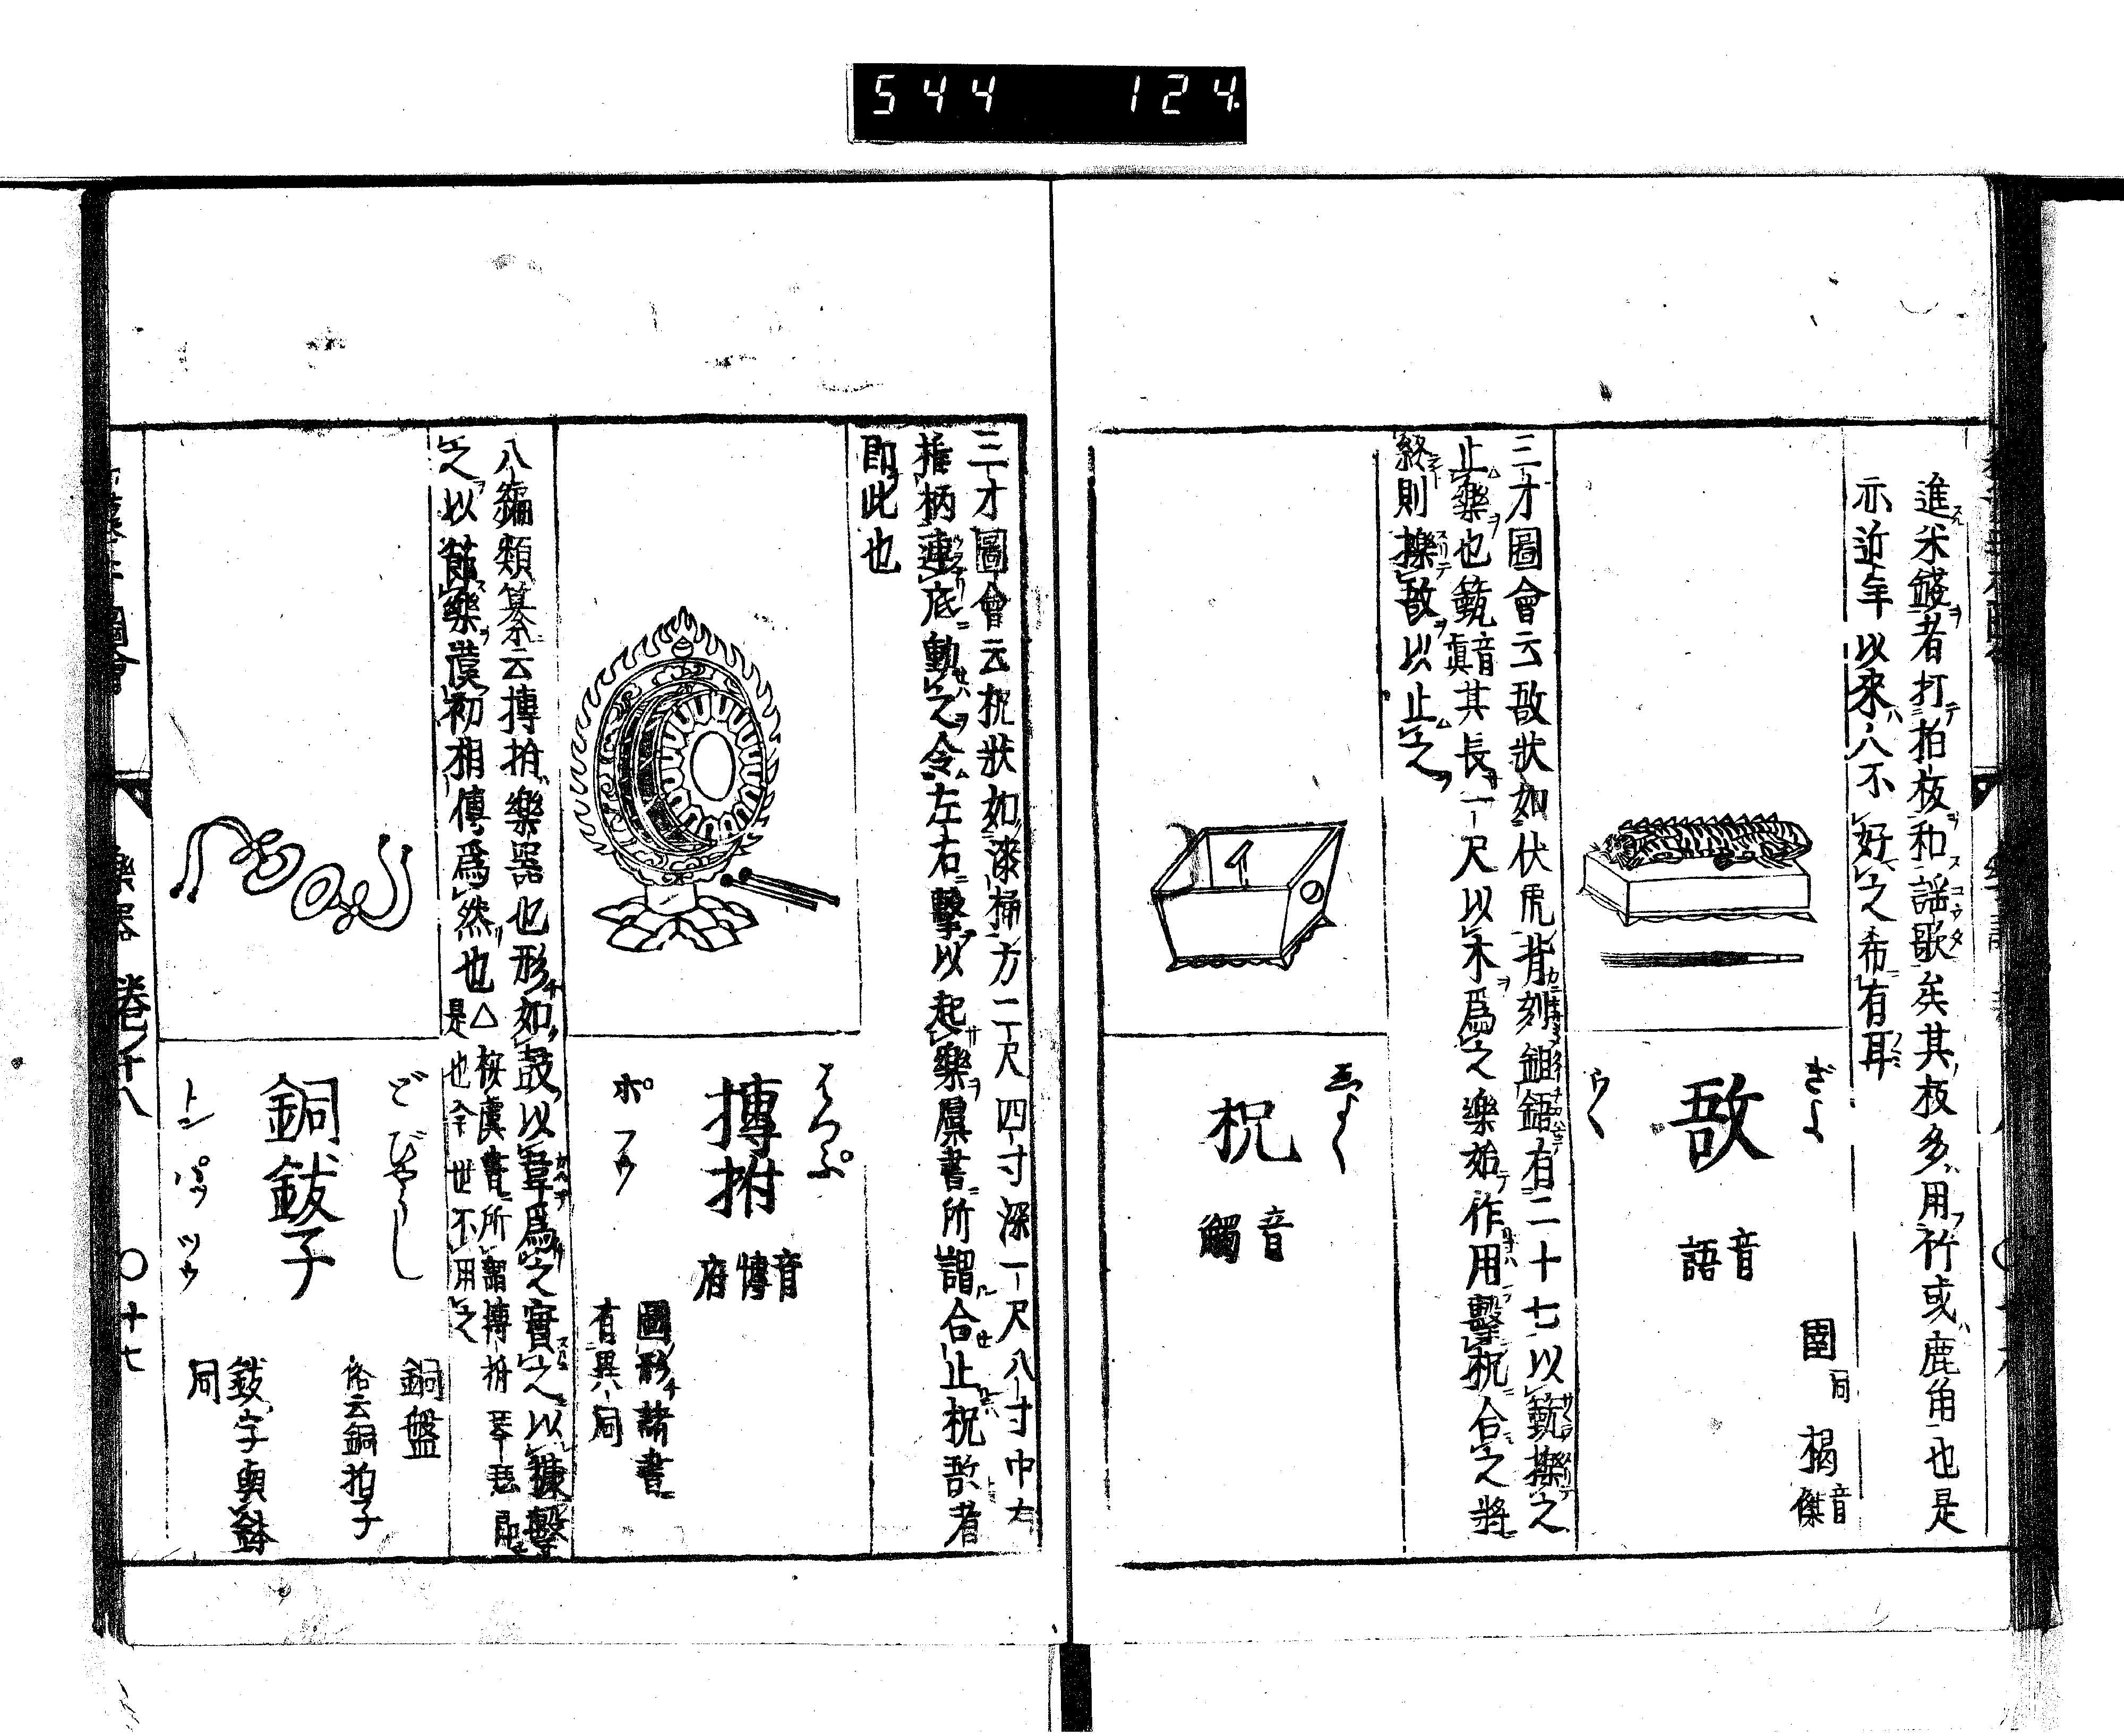 544 124
進米錢者打拍板和謡歌矣其板多用竹或鹿角也是
亦近年以來人不好之希有耳
ぎよ
敔
音語
ウく
圉同
楬音傑
三才圖會云敔狀如伏虎背刻鉏鋙有二十七以籈擽之
止樂也籈音真其長一尺以木爲之樂始作用擊柷合之將
終則擽敔以止之
しよく
柷
音觸
三才圖會云柷狀如漆桶方二尺四寸深一尺八寸中有
椎柄連底動之令左右擊以起樂虞書所謂合止柷敔者
即此也
はくぷ
搏拊
音博府
ポフウ
圖形諸書
有異同
八編類纂云搏拊樂器也形如鼓以韋爲之實之以穅擊
之以節樂漢初相傳爲然也△按虞書所謂搏拊琴瑟即
是也今世不用之
どびやうし
銅鈸子
トンパッツウ
銅盤
俗云銅拍子
鈸字與鉢
同
樂器 卷之十八 〇十七